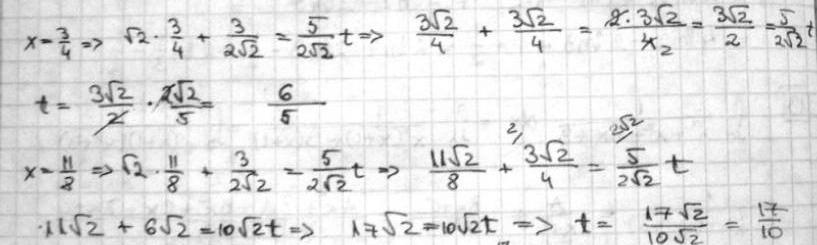 x = 3/4 => √2 · 3/4 + 3/(2√2) = 5/(2√2) t => 3√2/4 + 3√2/4 = 2·3√2/4 2 = 3√2/2 = 5/(2√2) t
t = 3√2/2 · 2√2/5 = 6/5
x = 11/8 => √2 · 11/8 + 3/(2√2) = 5/(2√2) t => 11√2/8 + 2/ 3√2/4 = 2√2/ 5/(2√2) t
·11√2 + 6√2 = 10√2t => 17√2 = 10√2t => t = 17√2/(10√2) = 17/10